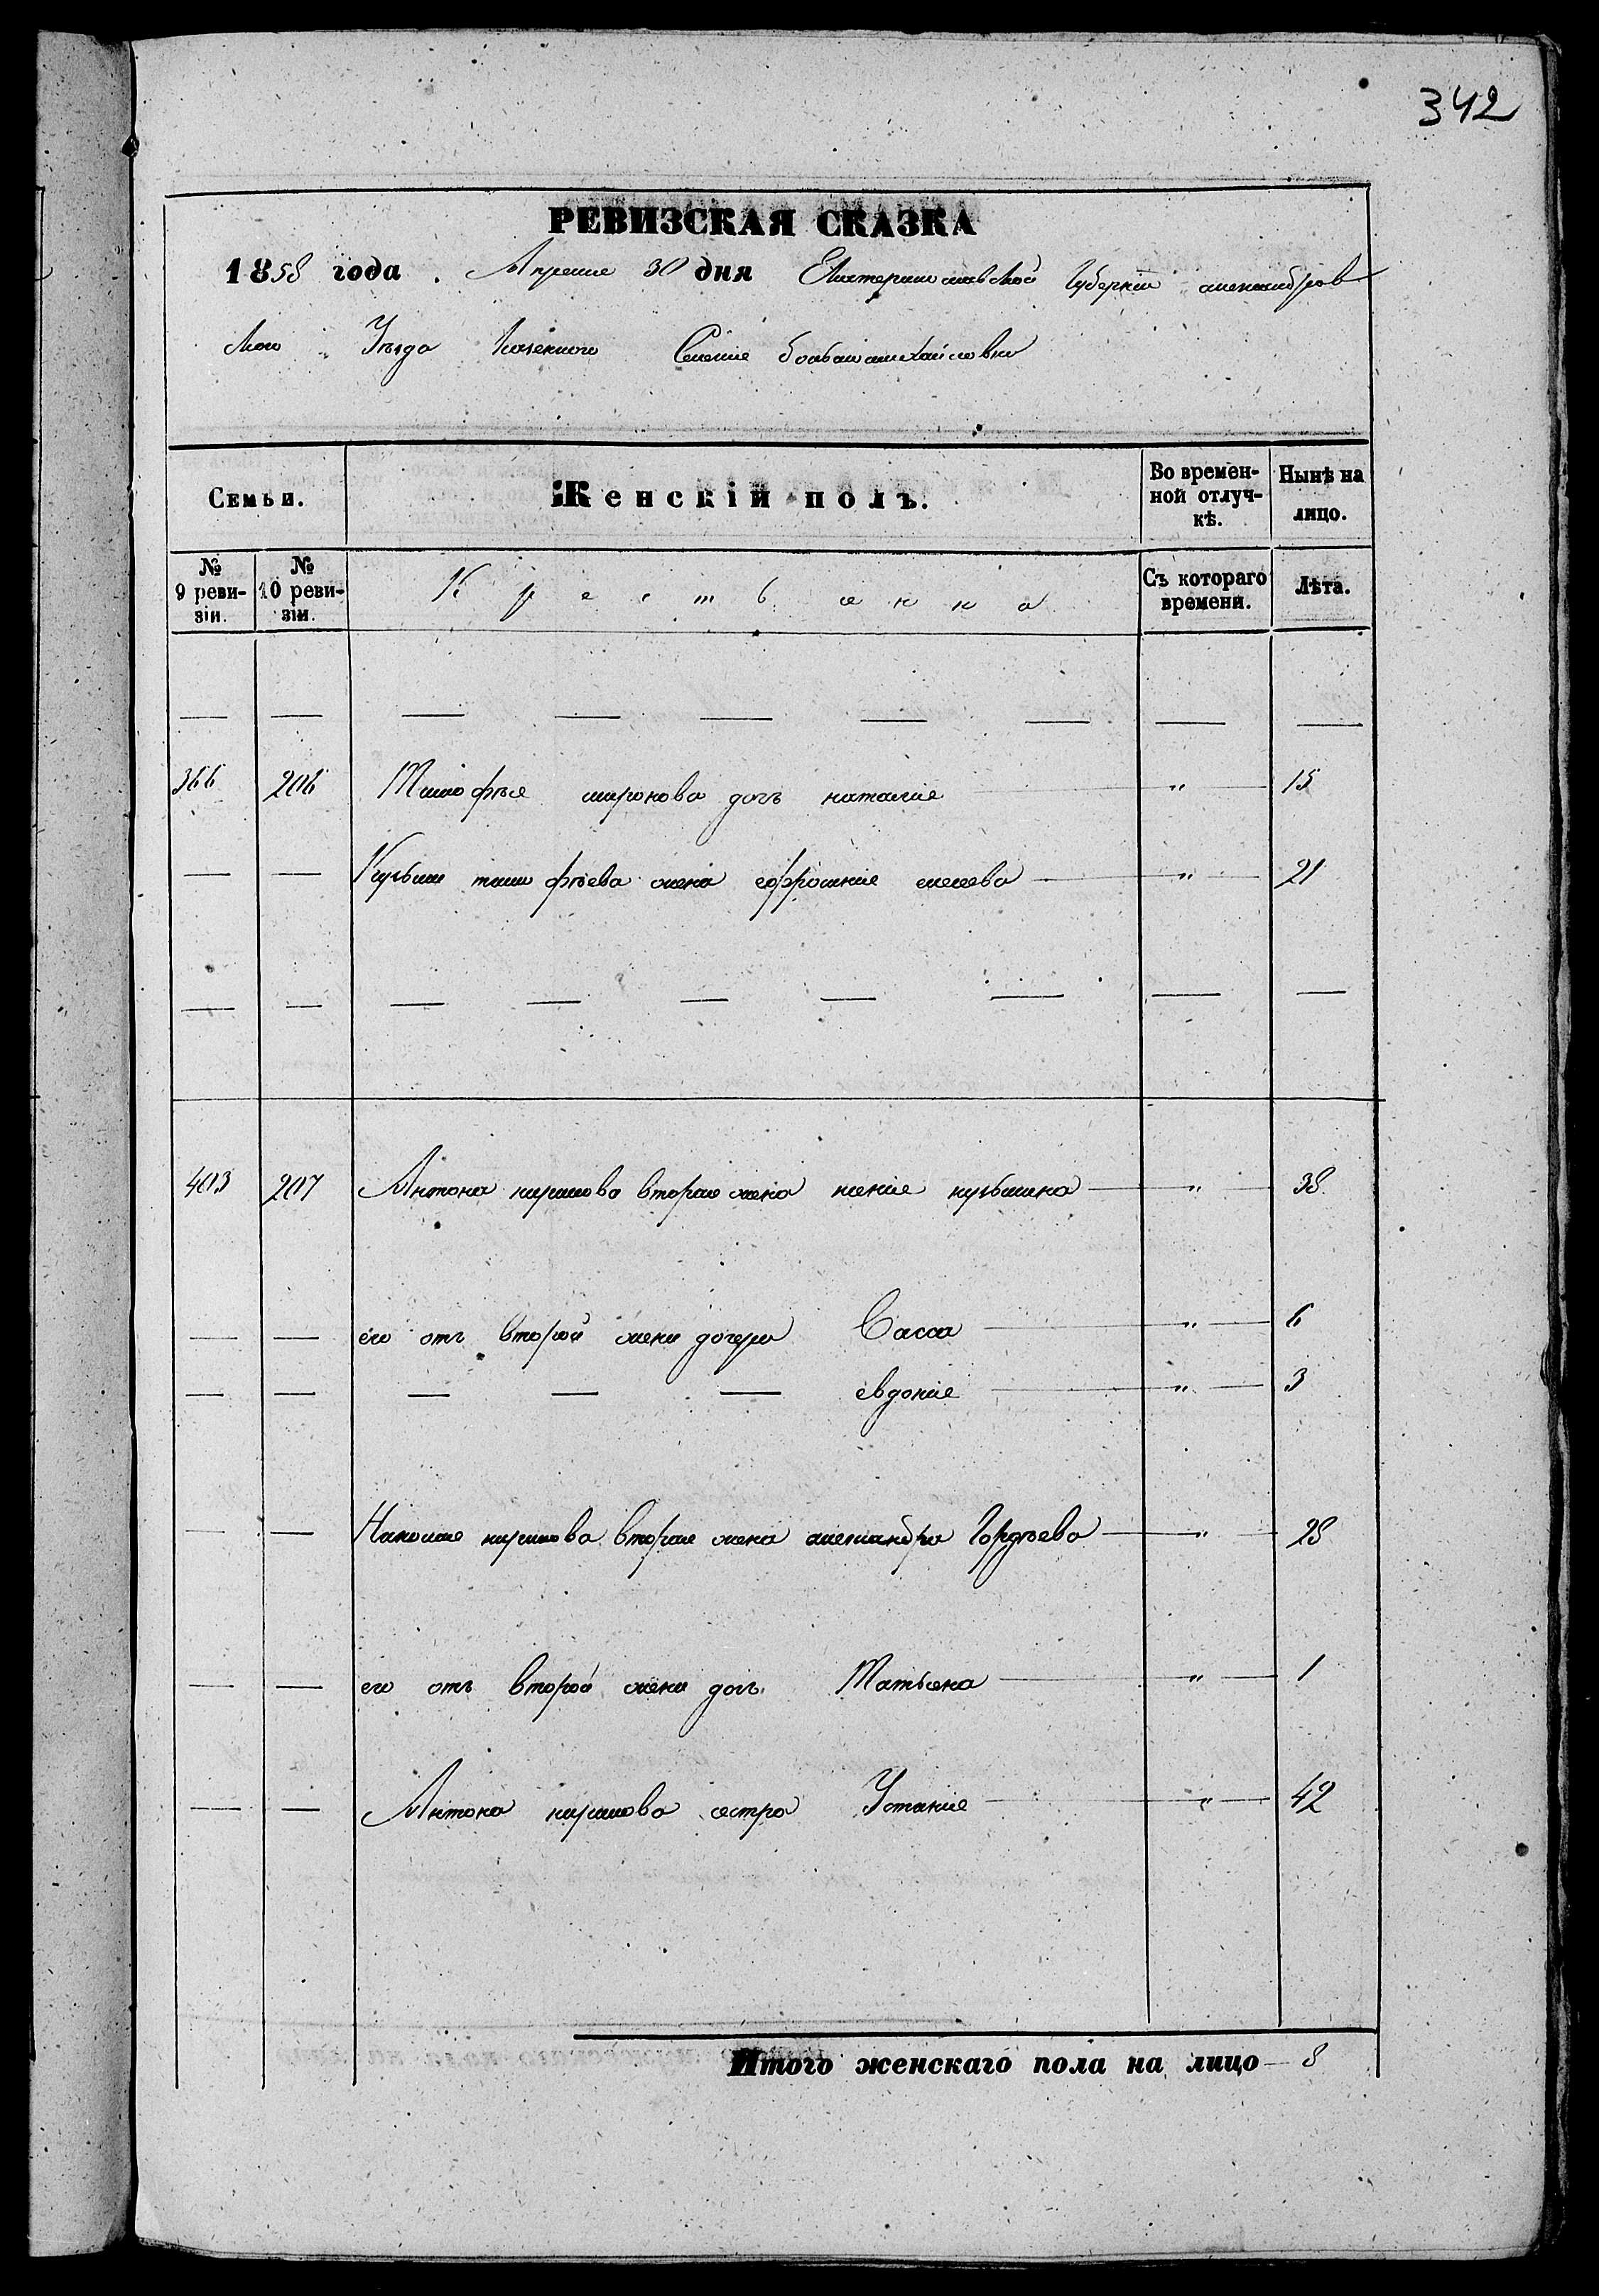 342
РЕВИЗСКАЯ СКАЗКА
1858 года. Апреля 30 дня Екатеринославской Губернии александров
ского Уѣзда Казенного Селение
Семьи. Женскій полъ. Во времен-ной отлуч-кѣ. Нынѣ на лицо.
№ 9 реви-зіи. № 10 реви-зіи. Крестьянка Съ котораго времени. Лѣта.
— — — — — — — — —
366 206 Тимофѣя миронова дочь наталия — " — 15
— — Кузьмы тимофѣева жена ефросиния — " — 21
— — — — — — — — —
403 207 Антона вторая жена ксения кузьмина — " — 38
— — его отъ второй жены дочери Васса — " — 6
— — — — — евдокия — " — 3
— — вторая жена александра Гордѣева — " — 28
— — его отъ второй жены дочь Татьяна — " — 1
— — Антона сестра Устиния — " — 42
Итого женскаго пола на лицо — 8